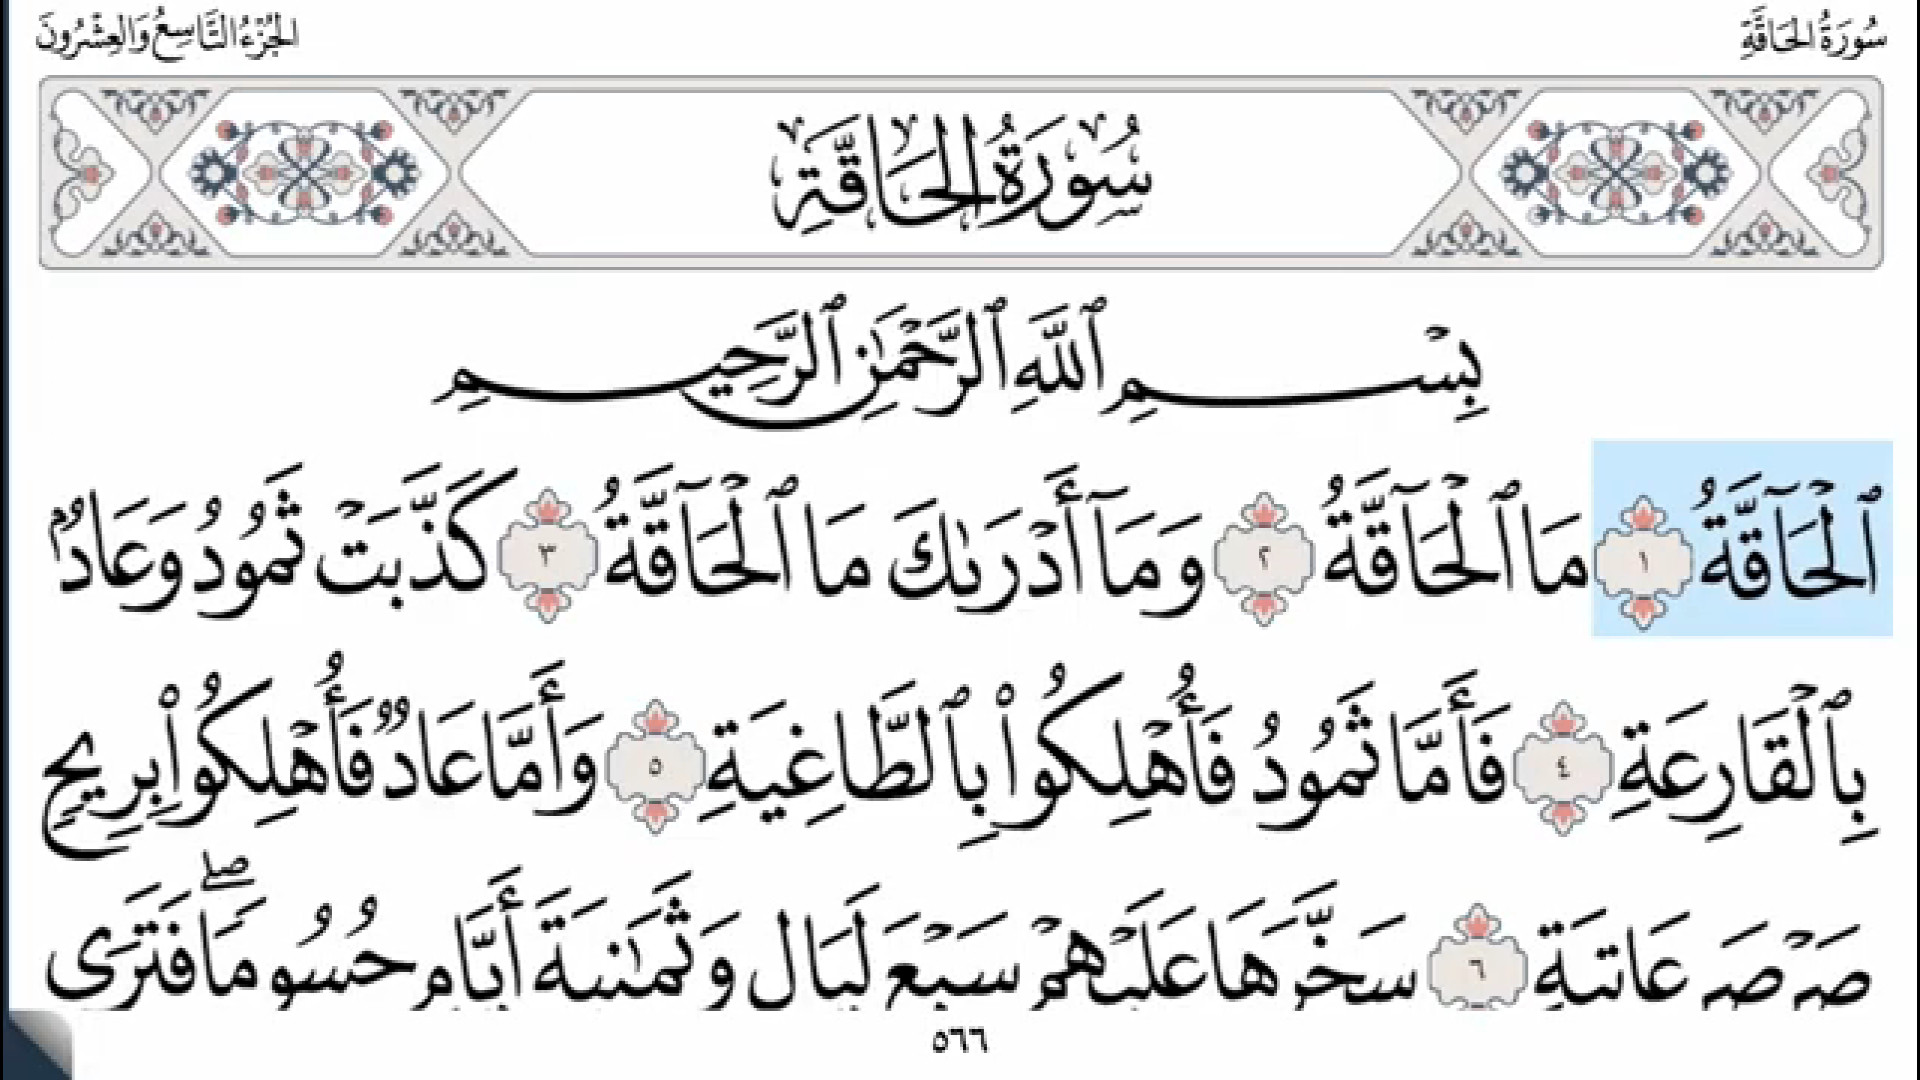 سُورَةُ الحَاقَّةِ
الجُزْءُ التَّاسِعُ وَالعِشْرُونَ
سُورَةُ الحَاقَّةِ
بِسْمِ ٱللَّهِ ٱلرَّحْمَٰنِ ٱلرَّحِيمِ
ٱلْحَآقَّةُ ١ مَا ٱلْحَآقَّةُ ٢ وَمَآ أَدْرَىٰكَ مَا ٱلْحَآقَّةُ ٣ كَذَّبَتْ ثَمُودُ وَعَادٌۢ
بِٱلْقَارِعَةِ ٤ فَأَمَّا ثَمُودُ فَأُهْلِكُوا۟ بِٱلطَّاغِيَةِ ٥ وَأَمَّا عَادٌ فَأُهْلِكُوا۟ بِرِيحٍ
صَرْصَرٍ عَاتِيَةٍ ٦ سَخَّرَهَا عَلَيْهِمْ سَبْعَ لَيَالٍ وَثَمَٰنِيَةَ أَيَّامٍ حُسُومًا ۖ فَتَرَى
٥٦٦